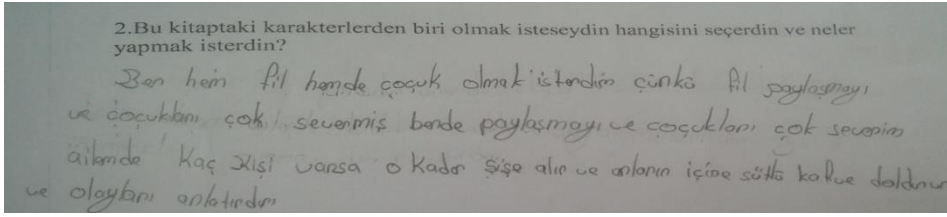 2.Bu kitaptaki karakterlerden biri olmak isteseydin hangisini seçerdin ve neler
yapmak isterdin?
Ben hem fil hemde çoçuk olmak isterdim çünkü fil paylaşmayı
ve çoçukları çok severmiş bende paylaşmayı ve çoçukları çok severim
ailemde Kaç Kişi varsa o Kadar şişe alır ve onların içine sütlü kahve doldurur
ve olayları anlatırdım